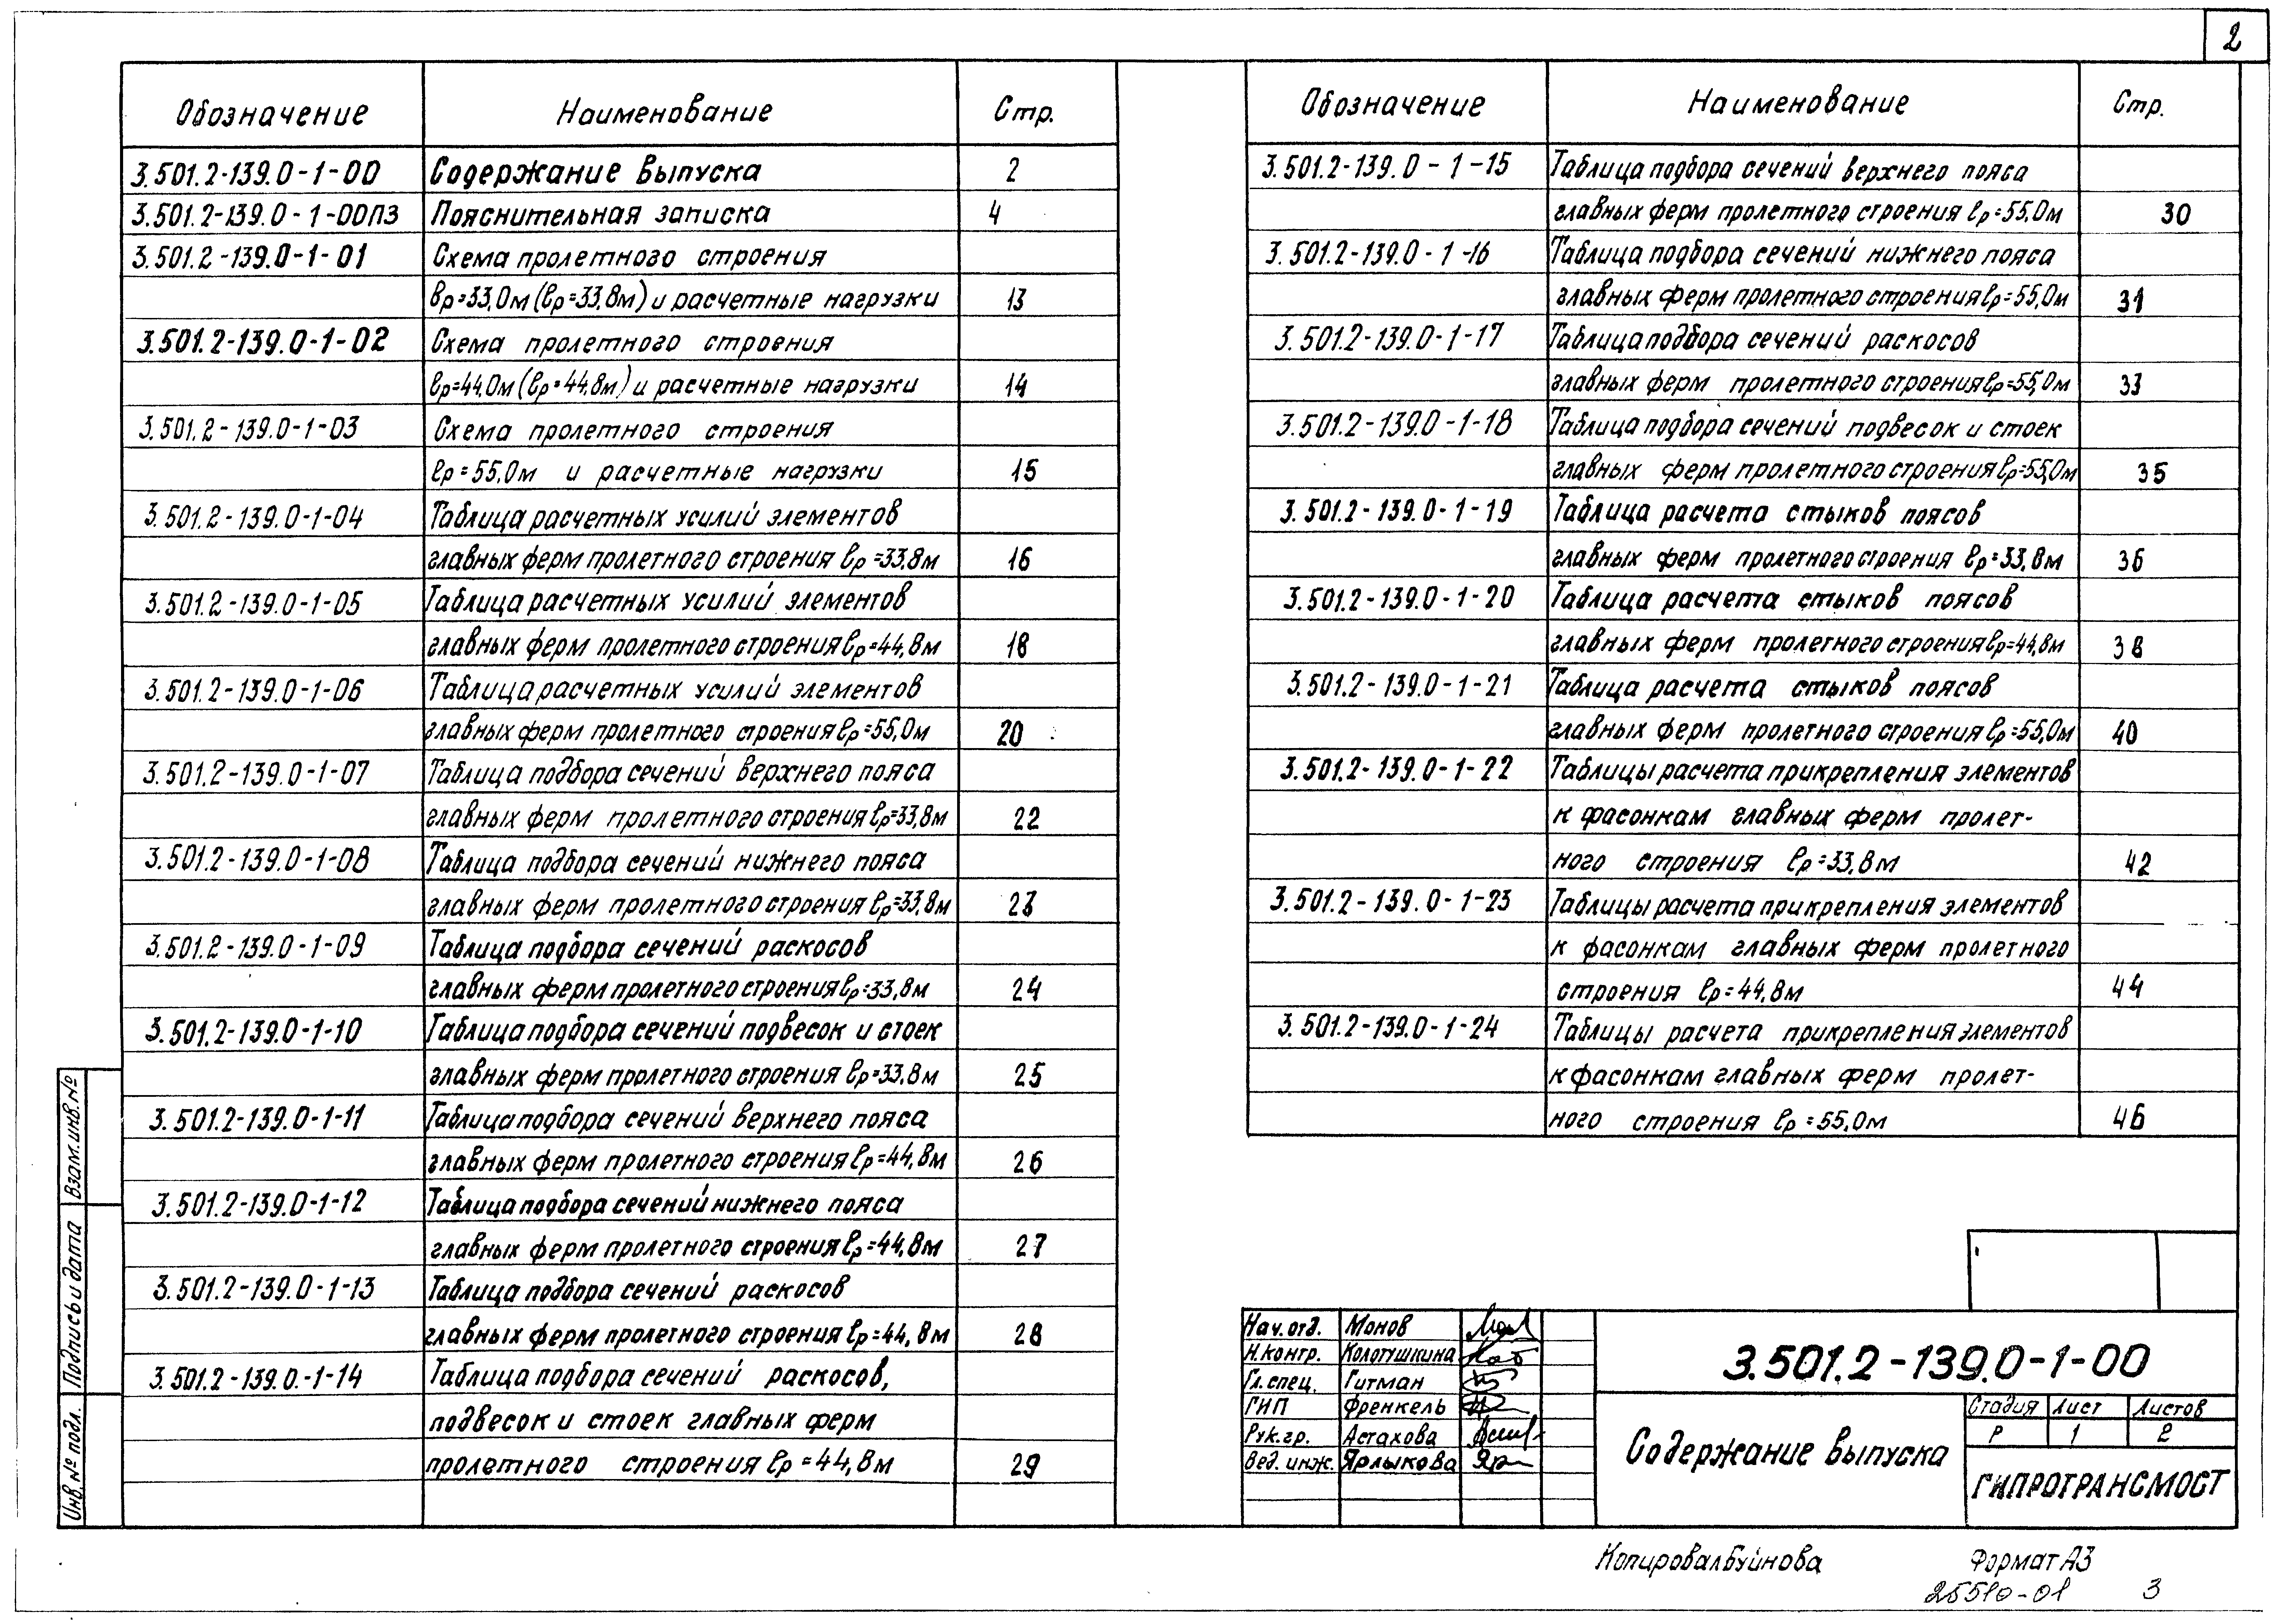 2
Обозначение Наименование Стр.
3.501.2-139.0-1-00 Содержание выпуска 2
3.501.2-139.0-1-00ПЗ Пояснительная записка 4
3.501.2-139.0-1-01 Схема пролетного строения
ℓр=33,0м (ℓр=33,8м) и расчетные нагрузки 13
3.501.2-139.0-1-02 Схема пролетного строения
ℓр=44,0м (ℓр=44,8м) и расчетные нагрузки 14
3.501.2-139.0-1-03 Схема пролетного строения
ℓр=55,0м и расчетные нагрузки 15
3.501.2-139.0-1-04 Таблица расчетных усилий элементов
главных ферм пролетного строения ℓр=33,8м 16
3.501.2-139.0-1-05 Таблица расчетных усилий элементов
главных ферм пролетного строения ℓр=44,8м 18
3.501.2-139.0-1-06 Таблица расчетных усилий элементов
главных ферм пролетного строения ℓр=55,0м 20
3.501.2-139.0-1-07 Таблица подбора сечений верхнего пояса
главных ферм пролетного строения ℓр=33,8м 22
3.501.2-139.0-1-08 Таблица подбора сечений нижнего пояса
главных ферм пролетного строения ℓр=33,8м 23
3.501.2-139.0-1-09 Таблица подбора сечений раскосов
главных ферм пролетного строения ℓр=33,8м 24
3.501.2-139.0-1-10 Таблица подбора сечений подвесок и стоек
главных ферм пролетного строения ℓр=33,8м 25
3.501.2-139.0-1-11 Таблица подбора сечений верхнего пояса
главных ферм пролетного строения ℓр=44,8м 26
3.501.2-139.0-1-12 Таблица подбора сечений нижнего пояса
главных ферм пролетного строения ℓр=44,8м 27
3.501.2-139.0-1-13 Таблица подбора сечений раскосов
главных ферм пролетного строения ℓр=44,8м 28
3.501.2-139.0.-1-14 Таблица подбора сечений раскосов,
подвесок и стоек главных ферм
пролетного строения ℓр=44,8м 29
Обозначение Наименование Стр.
3.501.2-139.0-1-15 Таблица подбора сечений верхнего пояса
главных ферм пролетного строения ℓр=55,0м 30
3.501.2-139.0-1-16 Таблица подбора сечений нижнего пояса
главных ферм пролетного строения ℓр=55,0м 31
3.501.2-139.0-1-17 Таблица подбора сечений раскосов
главных ферм пролетного строения ℓр=55,0м 33
3.501.2-139.0-1-18 Таблица подбора сечений подвесок и стоек
главных ферм пролетного строения ℓр=55,0м 35
3.501.2-139.0-1-19 Таблица расчета стыков поясов
главных ферм пролетного строения ℓр=33,8м 36
3.501.2-139.0-1-20 Таблица расчета стыков поясов
главных ферм пролетного строения ℓр=44,8м 38
3.501.2-139.0-1-21 Таблица расчета стыков поясов
главных ферм пролетного строения ℓр=55,0м 40
3.501.2-139.0-1-22 Таблицы расчета прикрепления элементов
к фасонкам главных ферм пролет-
ного строения ℓр=33,8м 42
3.501.2-139.0-1-23 Таблицы расчета прикрепления элементов
к фасонкам главных ферм пролетного
строения ℓр=44,8м 44
3.501.2-139.0-1-24 Таблицы расчета прикрепления элементов
к фасонкам главных ферм пролет-
ного строения ℓр=55,0м 46
Инв.№ подл. Подпись и дата Взам.инв.№
Нач.отд. Монов
Н.контр. Колотушкина
Гл.спец. Гитман
ГИП Френкель
Рук.гр. Астахова
Вед. инж. Ярлыкова
3.501.2-139.0-1-00
Содержание выпуска
Стадия Лист Листов
Р 1 2
ГИПРОТРАНСМОСТ
Копировал Буйнова Формат А3
25510-01 3